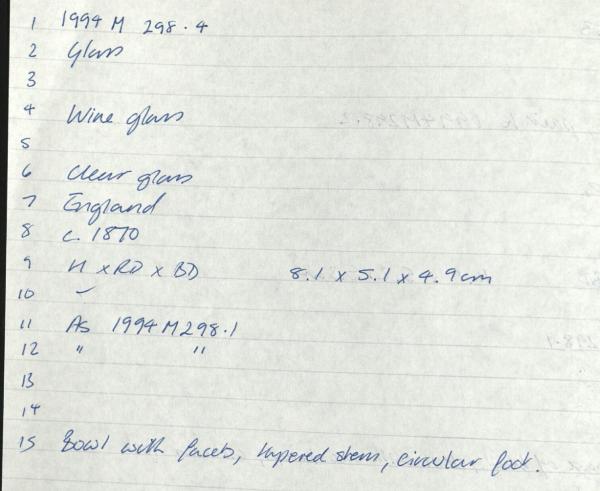 1 1994 M 298.4
2 Glass
3
4 Wine glass
5
6 Clear glass
7 England
8 c. 1870
9 H x RD x BD 8.1 x 5.1 x 4.9cm
10 -
11 As 1994 M298.1
12 " "
13
14
15 Bowl with facets, tapered stem, circular foot.